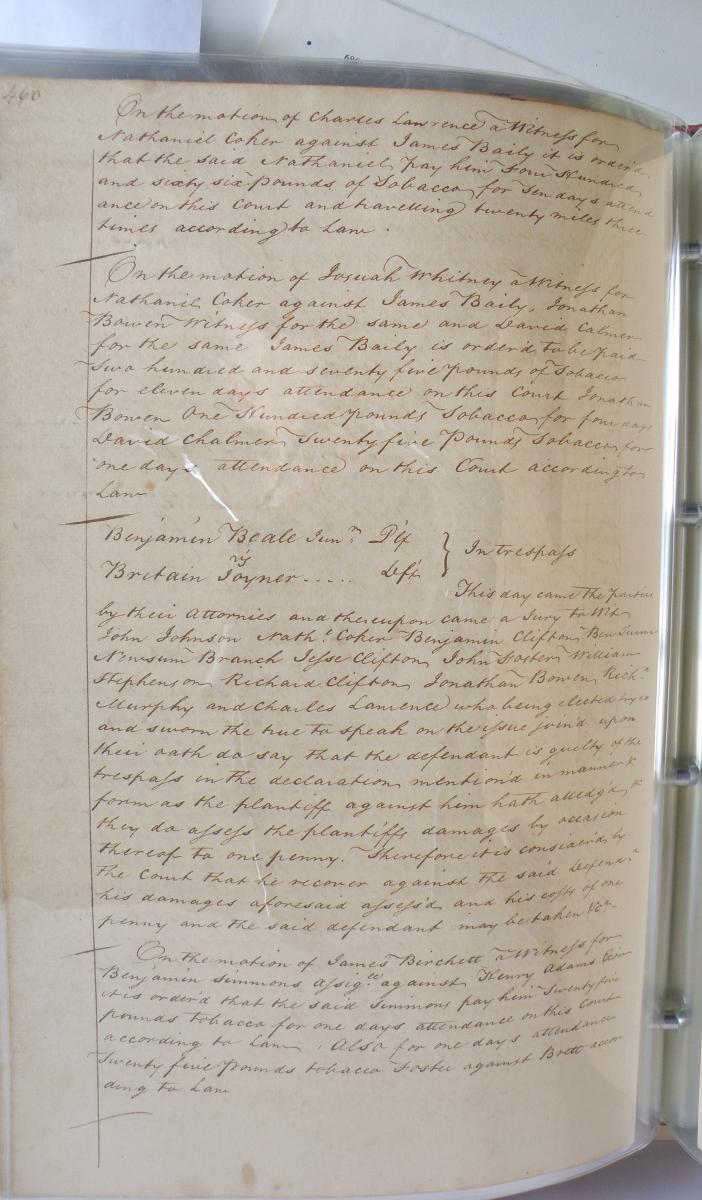 460
On the motion of Charles Lawrence a Witness for
Nathaniel Coker against James Baily it is order'd
that the said Nathaniel, pay him Four Hundred
and sixty six pounds of Tobacco, for Ten days attend
ance on this Court and travelling twenty miles three
times according to Law.
On the motion of Josuah Whitney a Witness for
Nathaniel Coker against James Baily, Jonathan
Bowen Witness for the same and David Calmer
for the same James Baily is order'd to be paid
Two hundred and seventy five pounds of Tobacco
for eleven days attendance on this Court Jonathan
Bowen One Hundred pounds Tobacco, for four days
David Chalmer, Twenty five Pounds Tobacco, for
one days attendance on this Court according to
Law
Benjamin Beale Junr. Plf } In trespass
vs
Britain Joyner..... Deft
This day came the parties
by their Attornies and thereupon came a Jury to Wit
John Johnson Nathl. Coker Benjamin Clifton, Ben Turner
Newsum Branch Jesse Clifton, John Foster William
Stephenson, Richard Clifton, Jonathan Bowen, Richd.
Murphy and Charles Lawrence who being elected try'd
and sworn the true to speak on the issue join'd upon
their oath do say that the defendant is guilty of the
trespass in the declaration mention'd in manner &
form as the plantiff against him hath alledg'd, &
they do assess the plantiffs damages by occasion
thereof to one penny. Therefore it is consider'd by
the Court that he recover against the said Defendt.
his damages aforesaid assess'd and his costs of one
penny and the said defendant may be taken &c.
On the motion of James Birchett a Witness for
Benjamin Simmons assigee. against Henry Adams
it is order'd that the said Simmons pay him Twenty five
pounds tobacco for one days attendance on this Court
according to Law, Also for one days attendance
Twenty five Pounds tobacco Foster against Brett accor
ding to Law